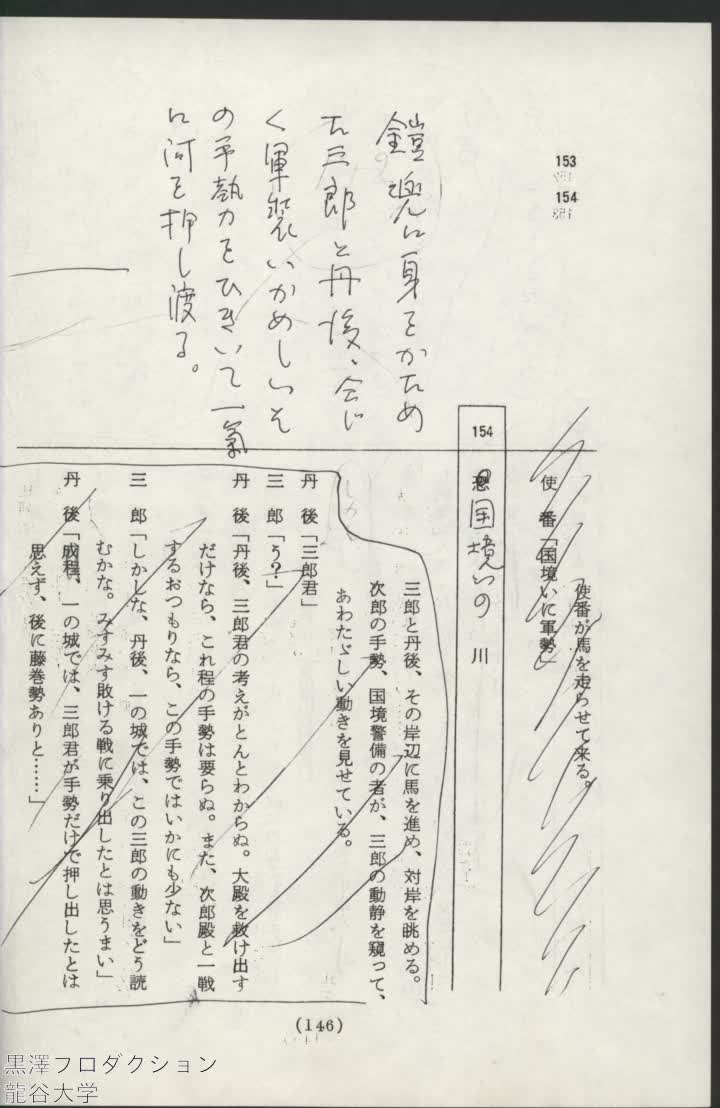 153
154
鎧兜に身をかため
た三郎と丹後、
く軍装いかめしいそ
の手勢力をひきいて一氣
に河を押し渡る。
使番が馬を走らせて来る。
使 番「国境いに軍勢」
154 国境いの 川
三郎と丹後、その岸辺に馬を進め、対岸を眺める。
次郎の手勢、国境警備の者が、三郎の動静を窺って、
あわたゞしい動きを見せている。
丹 後「三郎君」
三 郎「う?」
丹 後「丹後、三郎君の考えがとんとわからぬ。大殿を救け出す
だけなら、これ程の手勢は要らぬ。また、次郎殿と一戦
するおつもりなら、この手勢ではいかにも少ない」
三 郎「しかしな、丹後、一の城では、この三郎の動きをどう読
むかな。みすみす敗ける戦に乗り出したとは思うまい」
丹 後「成程、一の城では、三郎君が手勢だけで押し出したとは
思えず、後に藤巻勢ありと……」
(146)
黒澤プロダクション
龍谷大学